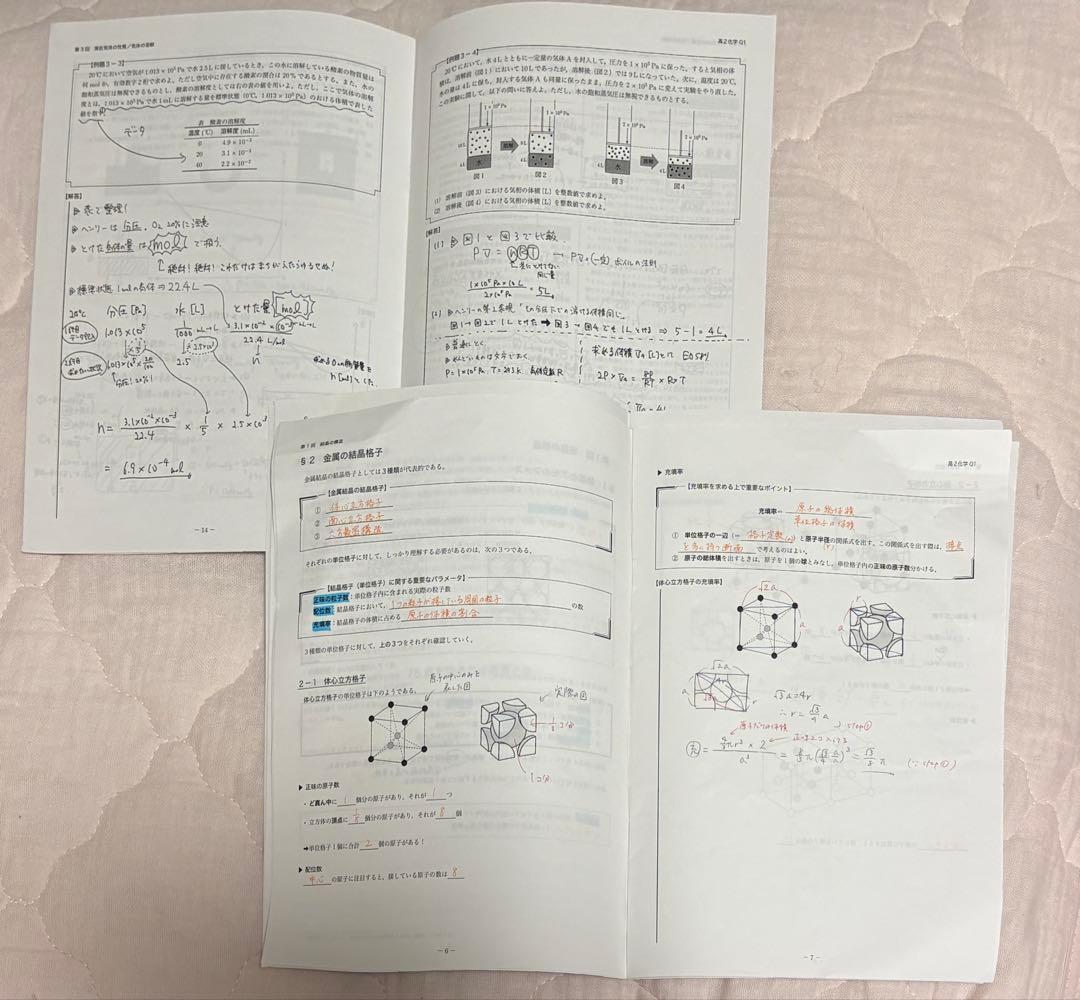 第3回 混合気体の性質/気体の溶解
【例題3-3】
20℃において空気が1.013×10⁵Paで水2.5Lに接しているとき，この水に溶解している酸素の物質量は
何molか，有効数字2桁で求めよ。ただし空気中に存在する酸素の割合は20%であるとする。また，水の
飽和蒸気圧は無視できるものとし，酸素の溶解度としては右の表の値を用いよ。ただし，ここで気体の溶解
度とは，1.013×10⁵Paで水1mLに溶解する量を標準状態（0℃，1.013×10⁵Pa）のおける体積で表した
値を指す。
データ
表 酸素の溶解度
温度(℃) 溶解度(mL)
0 4.9×10⁻²
20 3.1×10⁻²
60 2.2×10⁻²
【解答】
表で整理!
ヘンリーは分圧. O₂ 20%に注意
とけた気体の量はmolで扱う.
↑絶対!絶対!これだけはまちがえたらゆるせぬ!
標準状態 1molの気体⇒22.4L
20℃ 分圧[Pa] 水[L] とけた量[mol]
1.013×10⁵ 1/1000 3.1×10⁻²×10⁻³
22.4 L/mol
1.013×10⁵×20/100 2.5 n
↑分圧! 20%!
n = 3.1×10⁻²×10⁻³/22.4 × 1/5 × 2.5×10³
= 6.9×10⁻⁴ mol
－14－
高2化学Q1
【例題3-4】
20℃において，水4Lとともに一定量の気体Aを封入して，圧力を1×10⁵Paに保った。すると気相の体
積は，溶解前（図1）において10Lであったが，溶解後（図2）では9Lになっていた。次に，温度は20℃，
水の量は4Lに保ち，封入する気体Aも同量に保ったまま，圧力を2×10⁵Paに変えて実験をやり直した。
この実験に関して，以下の問いに答えよ。ただし，水の飽和蒸気圧は無視できるものとする。
1×10⁵Pa 1×10⁵Pa 2×10⁵Pa 2×10⁵Pa
溶解 溶解
4L 水 4L 4L 水 4L
図1 図2 図3 図4
(1) 溶解前（図3）における気相の体積〔L〕を整数値で求めよ。
(2) 溶解後（図4）における気相の体積〔L〕を整数値で求めよ。
【解答】
(1) 図1と図3で比較.
PV = nRT → PV=(一定) ボイルの法則
1×10⁵Pa×10L/2×10⁵Pa = 5L
(2) ヘンリーの第2表現「その分圧下での溶ける体積同じ」
図1→図2で1Lとけた ➡ 図3→図4でも1Lとける ⇒ 5-1=4L
普通にとく
P=1×10⁵Pa, T=293K, 気体定数R
第1回 結晶の構造
§2 金属の結晶格子
金属結晶の結晶格子としては3種類が代表的である。
【金属結晶の結晶格子】
① 体心立方格子
② 面心立方格子
③ 六方最密構造
それぞれの単位格子に対して，しっかり理解する必要があるのは，次の3つである。
【結晶格子（単位格子）に関する重要なパラメータ】
正味の粒子数：単位格子内に含まれる実際の粒子数
配位数：結晶格子において，1つの粒子が接している周囲の粒子の数
充填率：結晶格子の体積に占める原子の体積の割合
3種類の単位格子に対して，上の3つをそれぞれ確認していく。
2-1 体心立方格子
体心立方格子の単位格子は下のようである。
原子の中心のみを
表した図
実際の図
1/8コ分
1コ分
▶ 正味の原子数
・ど真ん中に 1 個分の原子があり，それが 1 つ
・立方体の頂点に 1/8 個分の原子があり，それが 8 個
➡単位格子1個に合計 2 個の原子がある！
▶ 配位数
中心 の原子に注目すると，接している原子の数は 8
－6－
高2化学Q1
▶ 充填率
【充填率を求める上で重要なポイント】
充填率＝ 原子の総体積
単位格子の体積
① 単位格子の一辺（＝ 格子定数(a) ）と原子半径(r)の関係式を出す。この関係式を出す際は，接点
を含に持つ断面 で考えるのはよい。
② 原子の総体積を出すときは，原子を1個の球とみなし，単位格子内の正味の原子数分かける。
【体心立方格子の充填率】
√2a
a
r
a
√2a
a 4r
√3a=4r
∴ r = √3/4 a
) step①
原子1つの体積
正味2つ入ってる
充 = 4/3πr³×2/a³ = 8/3π(√3/4 a/a)³ = √3/8 π
(∵ step①)
－7－